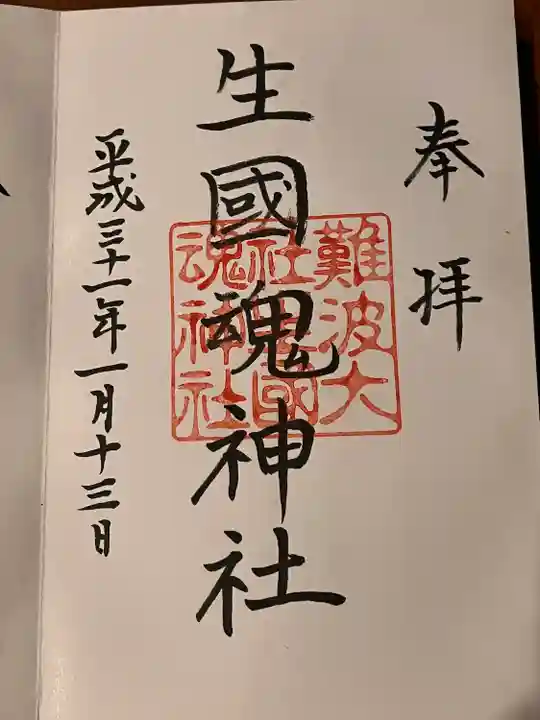 奉拝
生國魂神社
難波大
社生國
魂神社
平成三十一年一月十三日